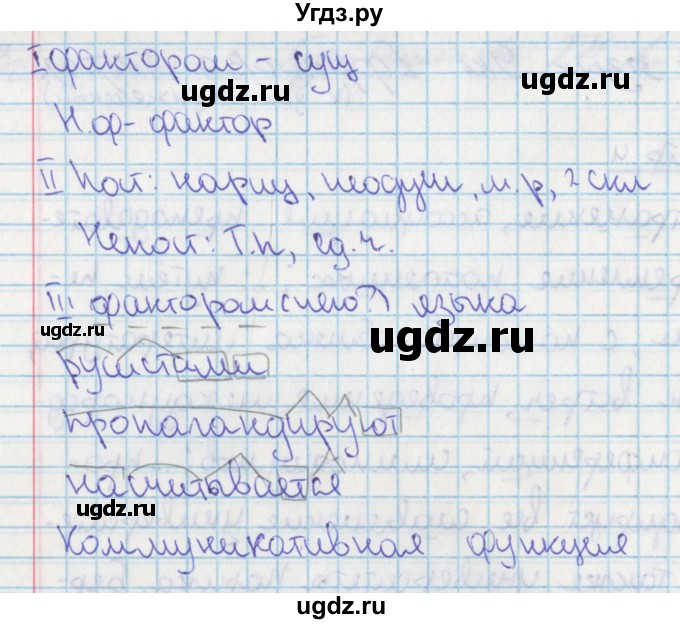 Угдз.ру
I фактором - сущ
ugdz.ru
Н.ф- фактор
ugdz.ru
II Пост: нариц, неодуш, м.р, 2 скл
Непост: Т.п, ед.ч.
III фактором (чего?) языка
ugdz.ru
ugdz.ru
русистами
пропагандируют
ugdz.ru
насчитывается
ugdz.ru
Коммуникативная функция
ugdz.ru